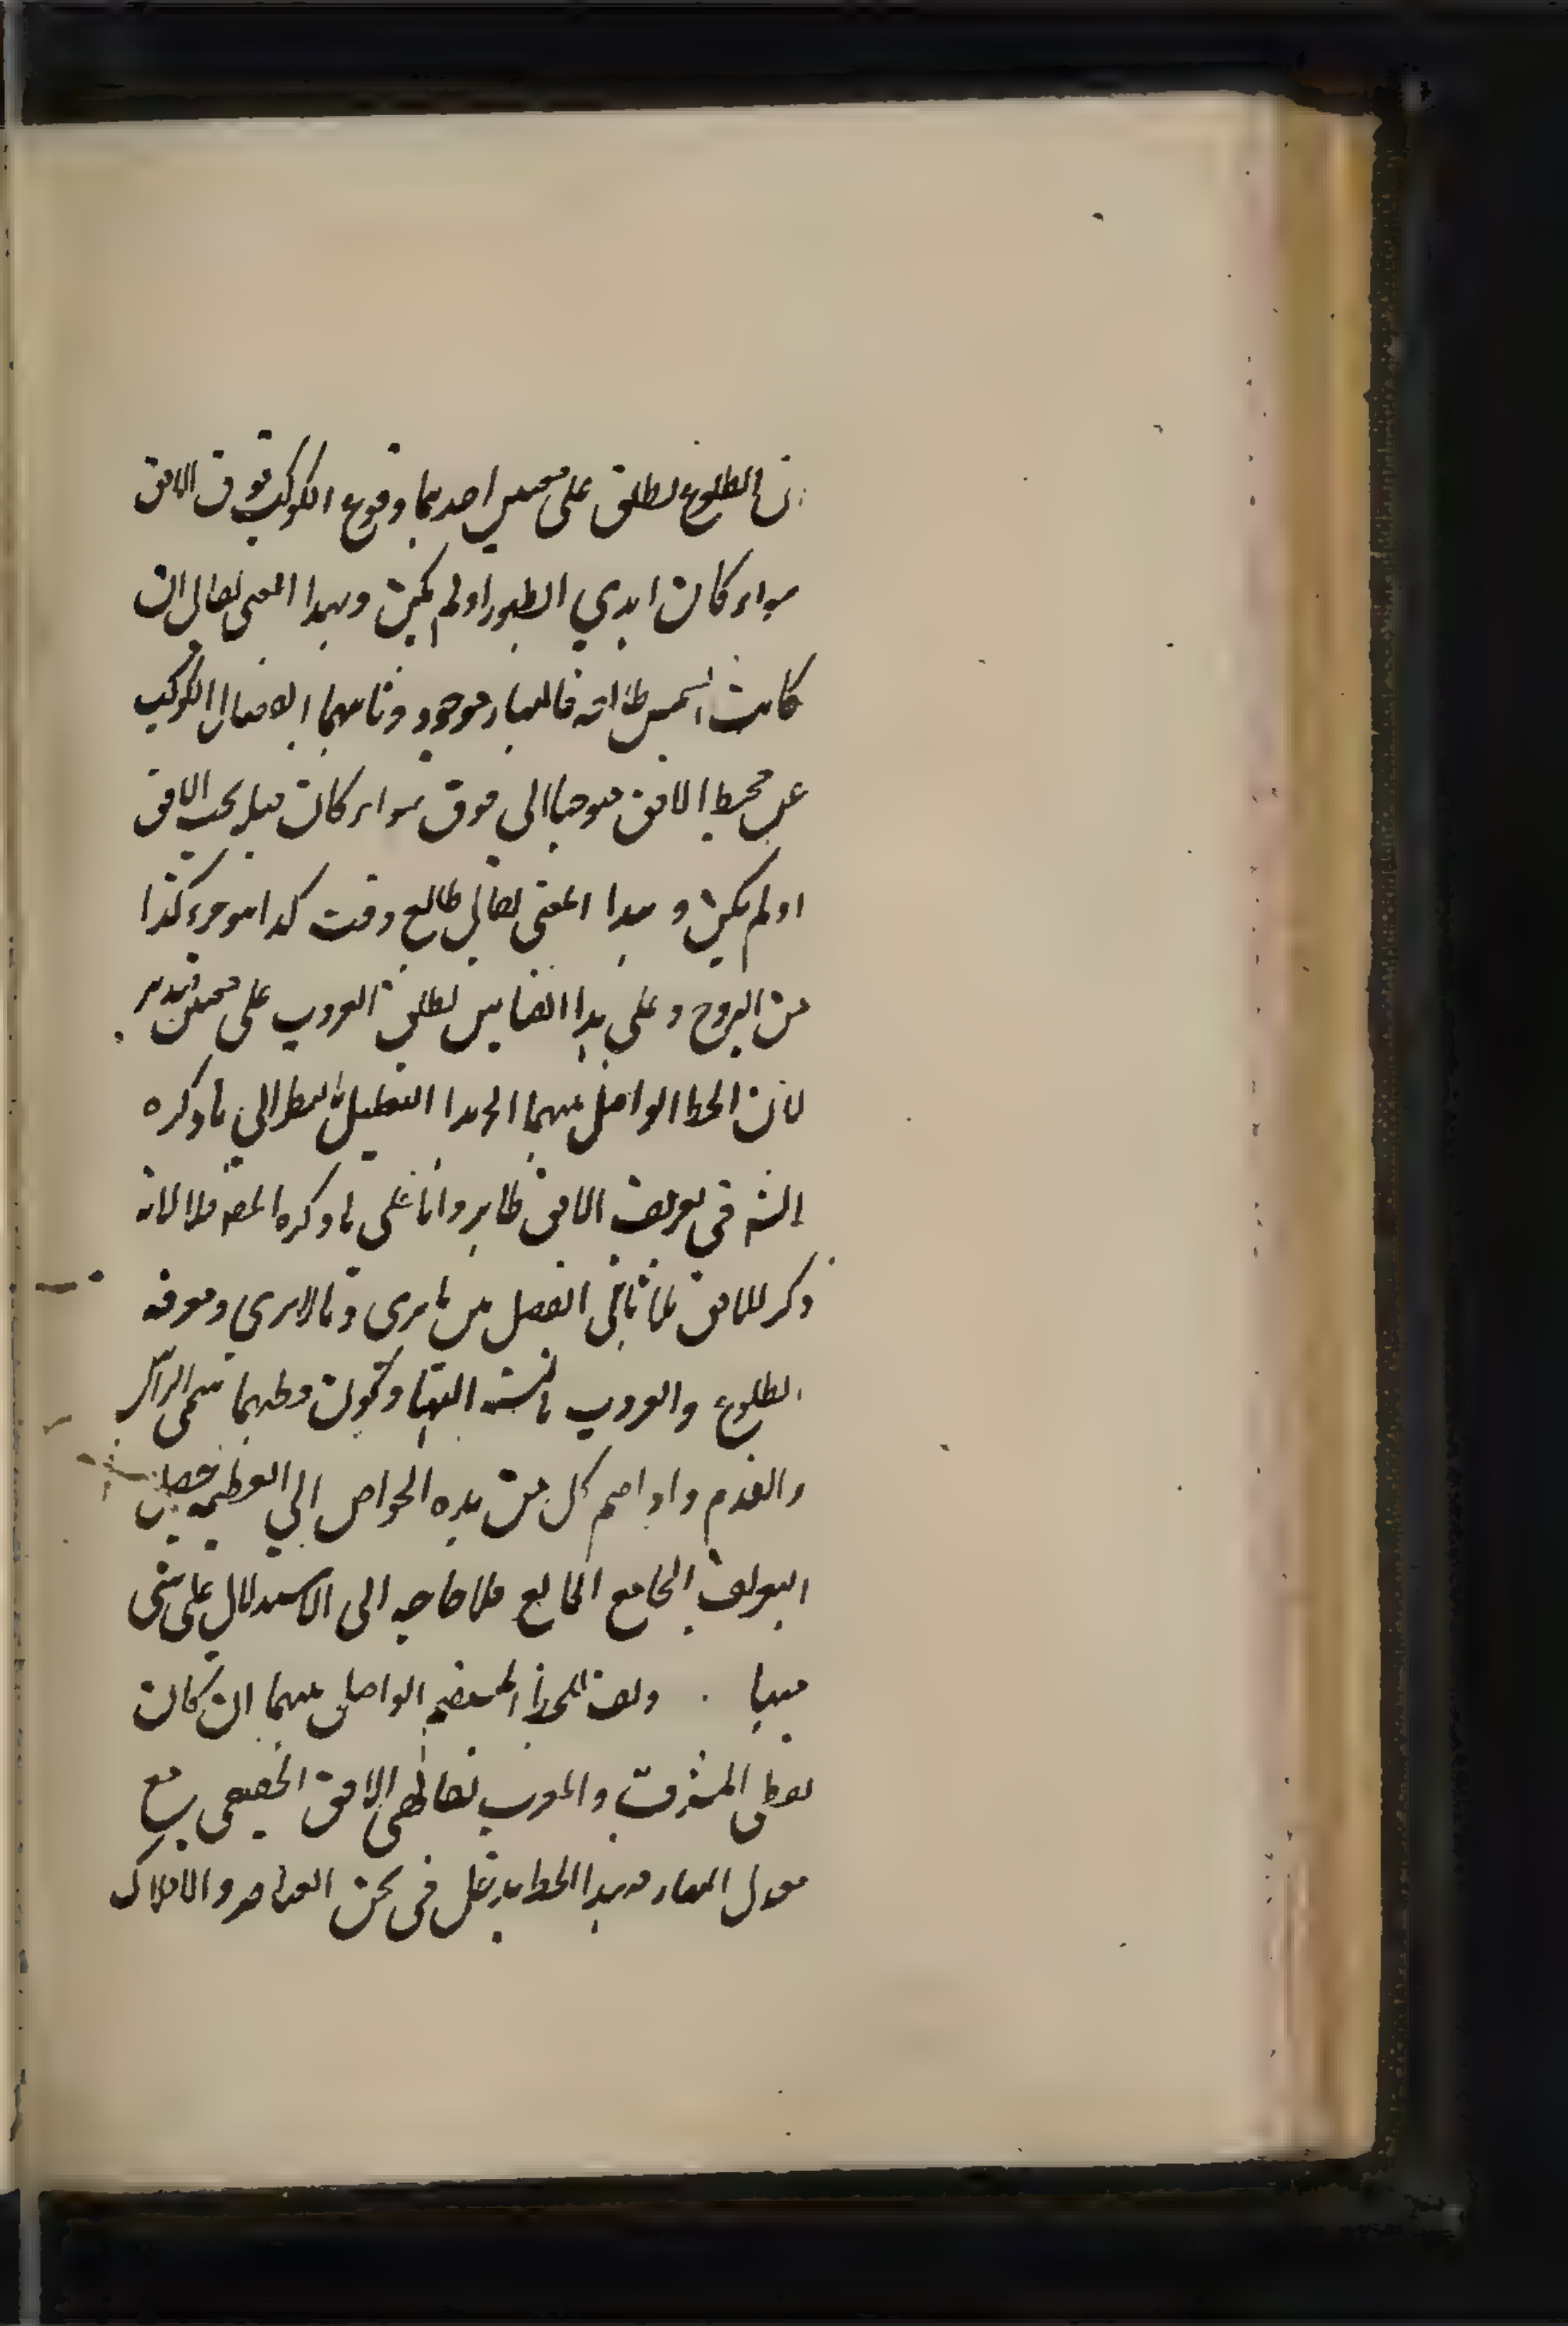 ان الطلوع يطلق على معنيين احدهما وقوع الكوكب فوق الافق
سواء كان ابدي الظهور او لم يكن وبهذا المعنى يقال ان
كانت الشمس طالعة فالنهار موجود وثانيهما انفصال الكوكب
عن محيط الافق متوجها الى فوق سواء كان قبله تحت الافق
او لم يكن وبهذا المعنى يقال طالع وقت كذا هو جزء كذا
من البروج وعلى هذا القياس يطلق الغروب على معنيين فتدبر
لان الخط الواصل بينهما الى هذا التعليل بالنظر الى ما ذكره
الش في تعريف الافق ظاهر واما على ما ذكره المص فلا لانه
ذكر للافق خاصتي الفصل بين ما يرى وما لا يرى ومعرفة
الطلوع والغروب بالنسبة اليها وكون قطبيها سمتي الراس
والقدم واذا ضم كل من هذه الخواص الى العظيمة حصل
التعريف الجامع المانع فلا حاجة الى الاستدلال على شيء
منها . الواصل بينهما ان كان
نقطتي المشرق والمغرب تقاطعي الافق الحقيقي مع
معدل النهار فهذا الخط يدخل في ثخن العناصر والافلاك